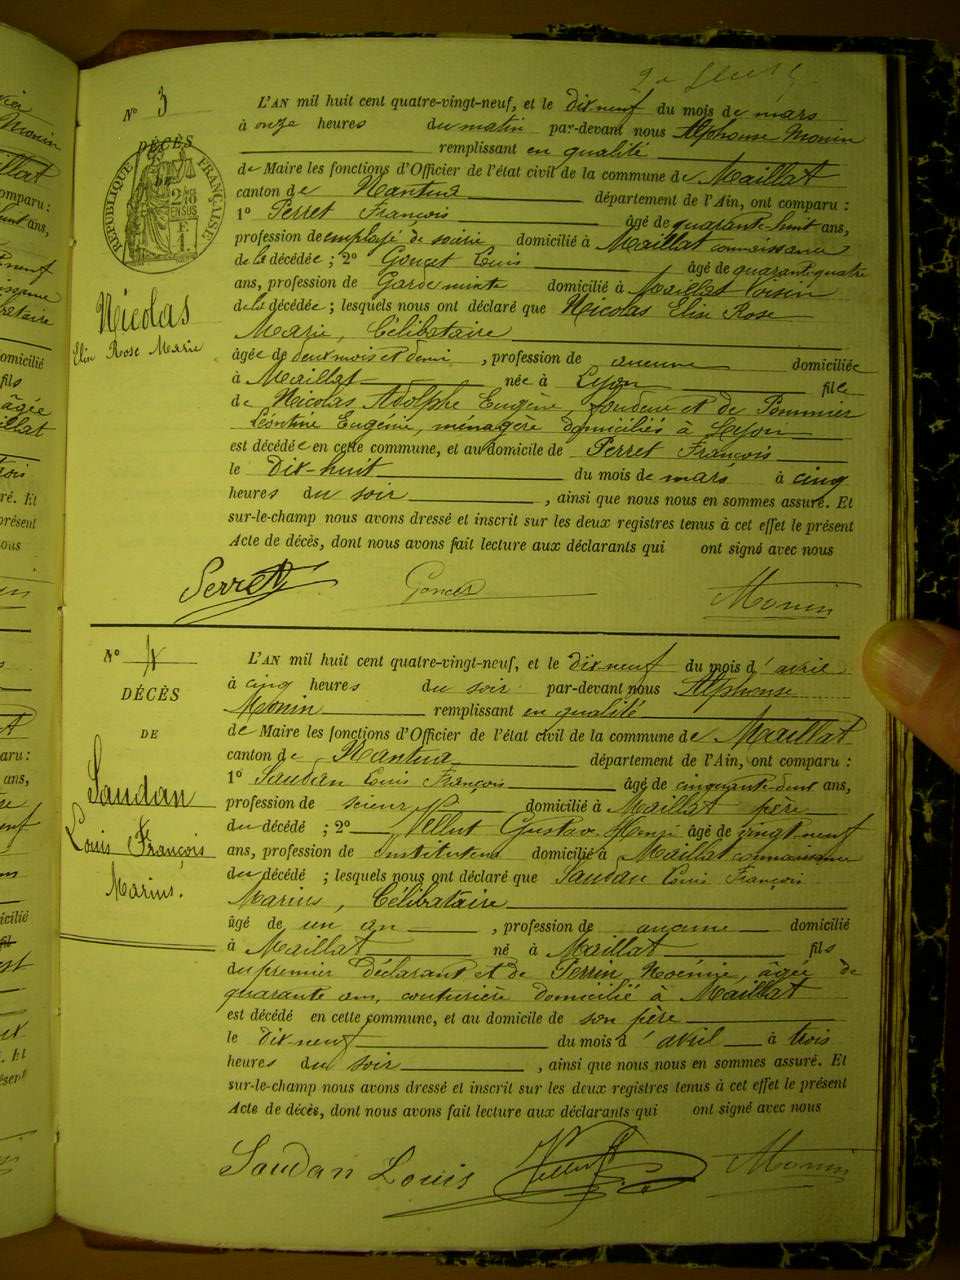 N° 3
DÉCÈS
DE
RÉPUBLIQUE FRANÇAISE
2/10 EN SUS
F
1
Nicolas
Elise Rose Marie
L'AN mil huit cent quatre-vingt-neuf, et le dix neuf du mois de mars
à onze heures du matin par-devant nous Alphonse Monin
remplissant en qualité
de Maire les fonctions d'Officier de l'état civil de la commune de Maillat
canton de Nantua département de l'Ain, ont comparu :
1° Perret François âgé de quarante-huit ans,
profession de employé de soierie domicilié à Maillat connaissance
de la décédée ; 2° Goncet Louis âgé de quarante quatre
ans, profession de Garde mixte domicilié à Maillat Voisin
de la décédée ; lesquels nous ont déclaré que Nicolas Elise Rose
Marie, Célibataire
âgée de deux mois et demi , profession de aucune domiciliée
à Maillat née à Lyon fille
de Nicolas Adolphe Eugène, fondeur et de Pommier
Léontine Eugénie, ménagère domiciliés à Lyon
est décédée en cette commune, et au domicile de Perret François
le Dix-huit du mois de mars à cinq
heures du soir , ainsi que nous nous en sommes assuré. Et
sur-le-champ nous avons dressé et inscrit sur les deux registres tenus à cet effet le présent
Acte de décès, dont nous avons fait lecture aux déclarants qui ont signé avec nous
Perret Goncet Monin
N° 4
DÉCÈS
DE
Saudan
Louis François
Marius.
L'AN mil huit cent quatre-vingt-neuf, et le dix neuf du mois d'avril
à cinq heures du soir par-devant nous Alphonse
Monin remplissant en qualité
de Maire les fonctions d'Officier de l'état civil de la commune de Maillat
canton de Nantua département de l'Ain, ont comparu :
1° Saudan Louis François âgé de cinquante-deux ans,
profession de scieur domicilié à Maillat père
du décédé ; 2° Vellut Gustave Henri âgé de vingt neuf
ans, profession de instituteur domicilié à Maillat connaissance
du décédé ; lesquels nous ont déclaré que Saudan Louis François
Marius, Célibataire
âgé de un an , profession de aucune domicilié
à Maillat né à Maillat fils
du premier déclarant et de Perrin Noémie, âgée de
quarante ans, couturière domicilié à Maillat
est décédé en cette commune, et au domicile de son père
le dix neuf du mois d'avril à trois
heures du soir , ainsi que nous nous en sommes assuré. Et
sur-le-champ nous avons dressé et inscrit sur les deux registres tenus à cet effet le présent
Acte de décès, dont nous avons fait lecture aux déclarants qui ont signé avec nous
Saudan Louis Vellut Monin